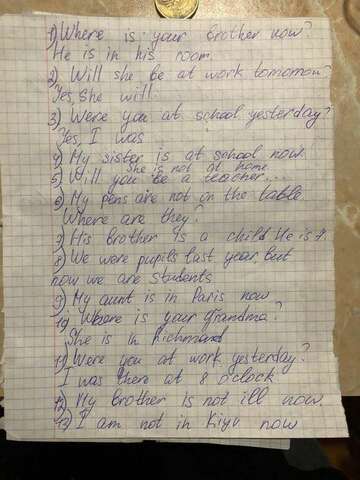 1) Where is your brother now?
He is in his room.
2) Will she be at work tomorrow?
Yes, She will.
3) Were you at school yesterday?
Yes, I was
4) My sister is at school now.
She is not at home
5) Will you be a teacher...
6) My pens are not on the table
Where are they.
7) His brother is a child He is 7.
8) We were pupils last year, but
now we are Students
9) My aunt is in Paris now
10) Where is your Grandma?
She is in Richmond
11) Were you at work yesterday?
I was there at 8 o'clock
12) My brother is not ill now.
13) I am not in Kiyv now